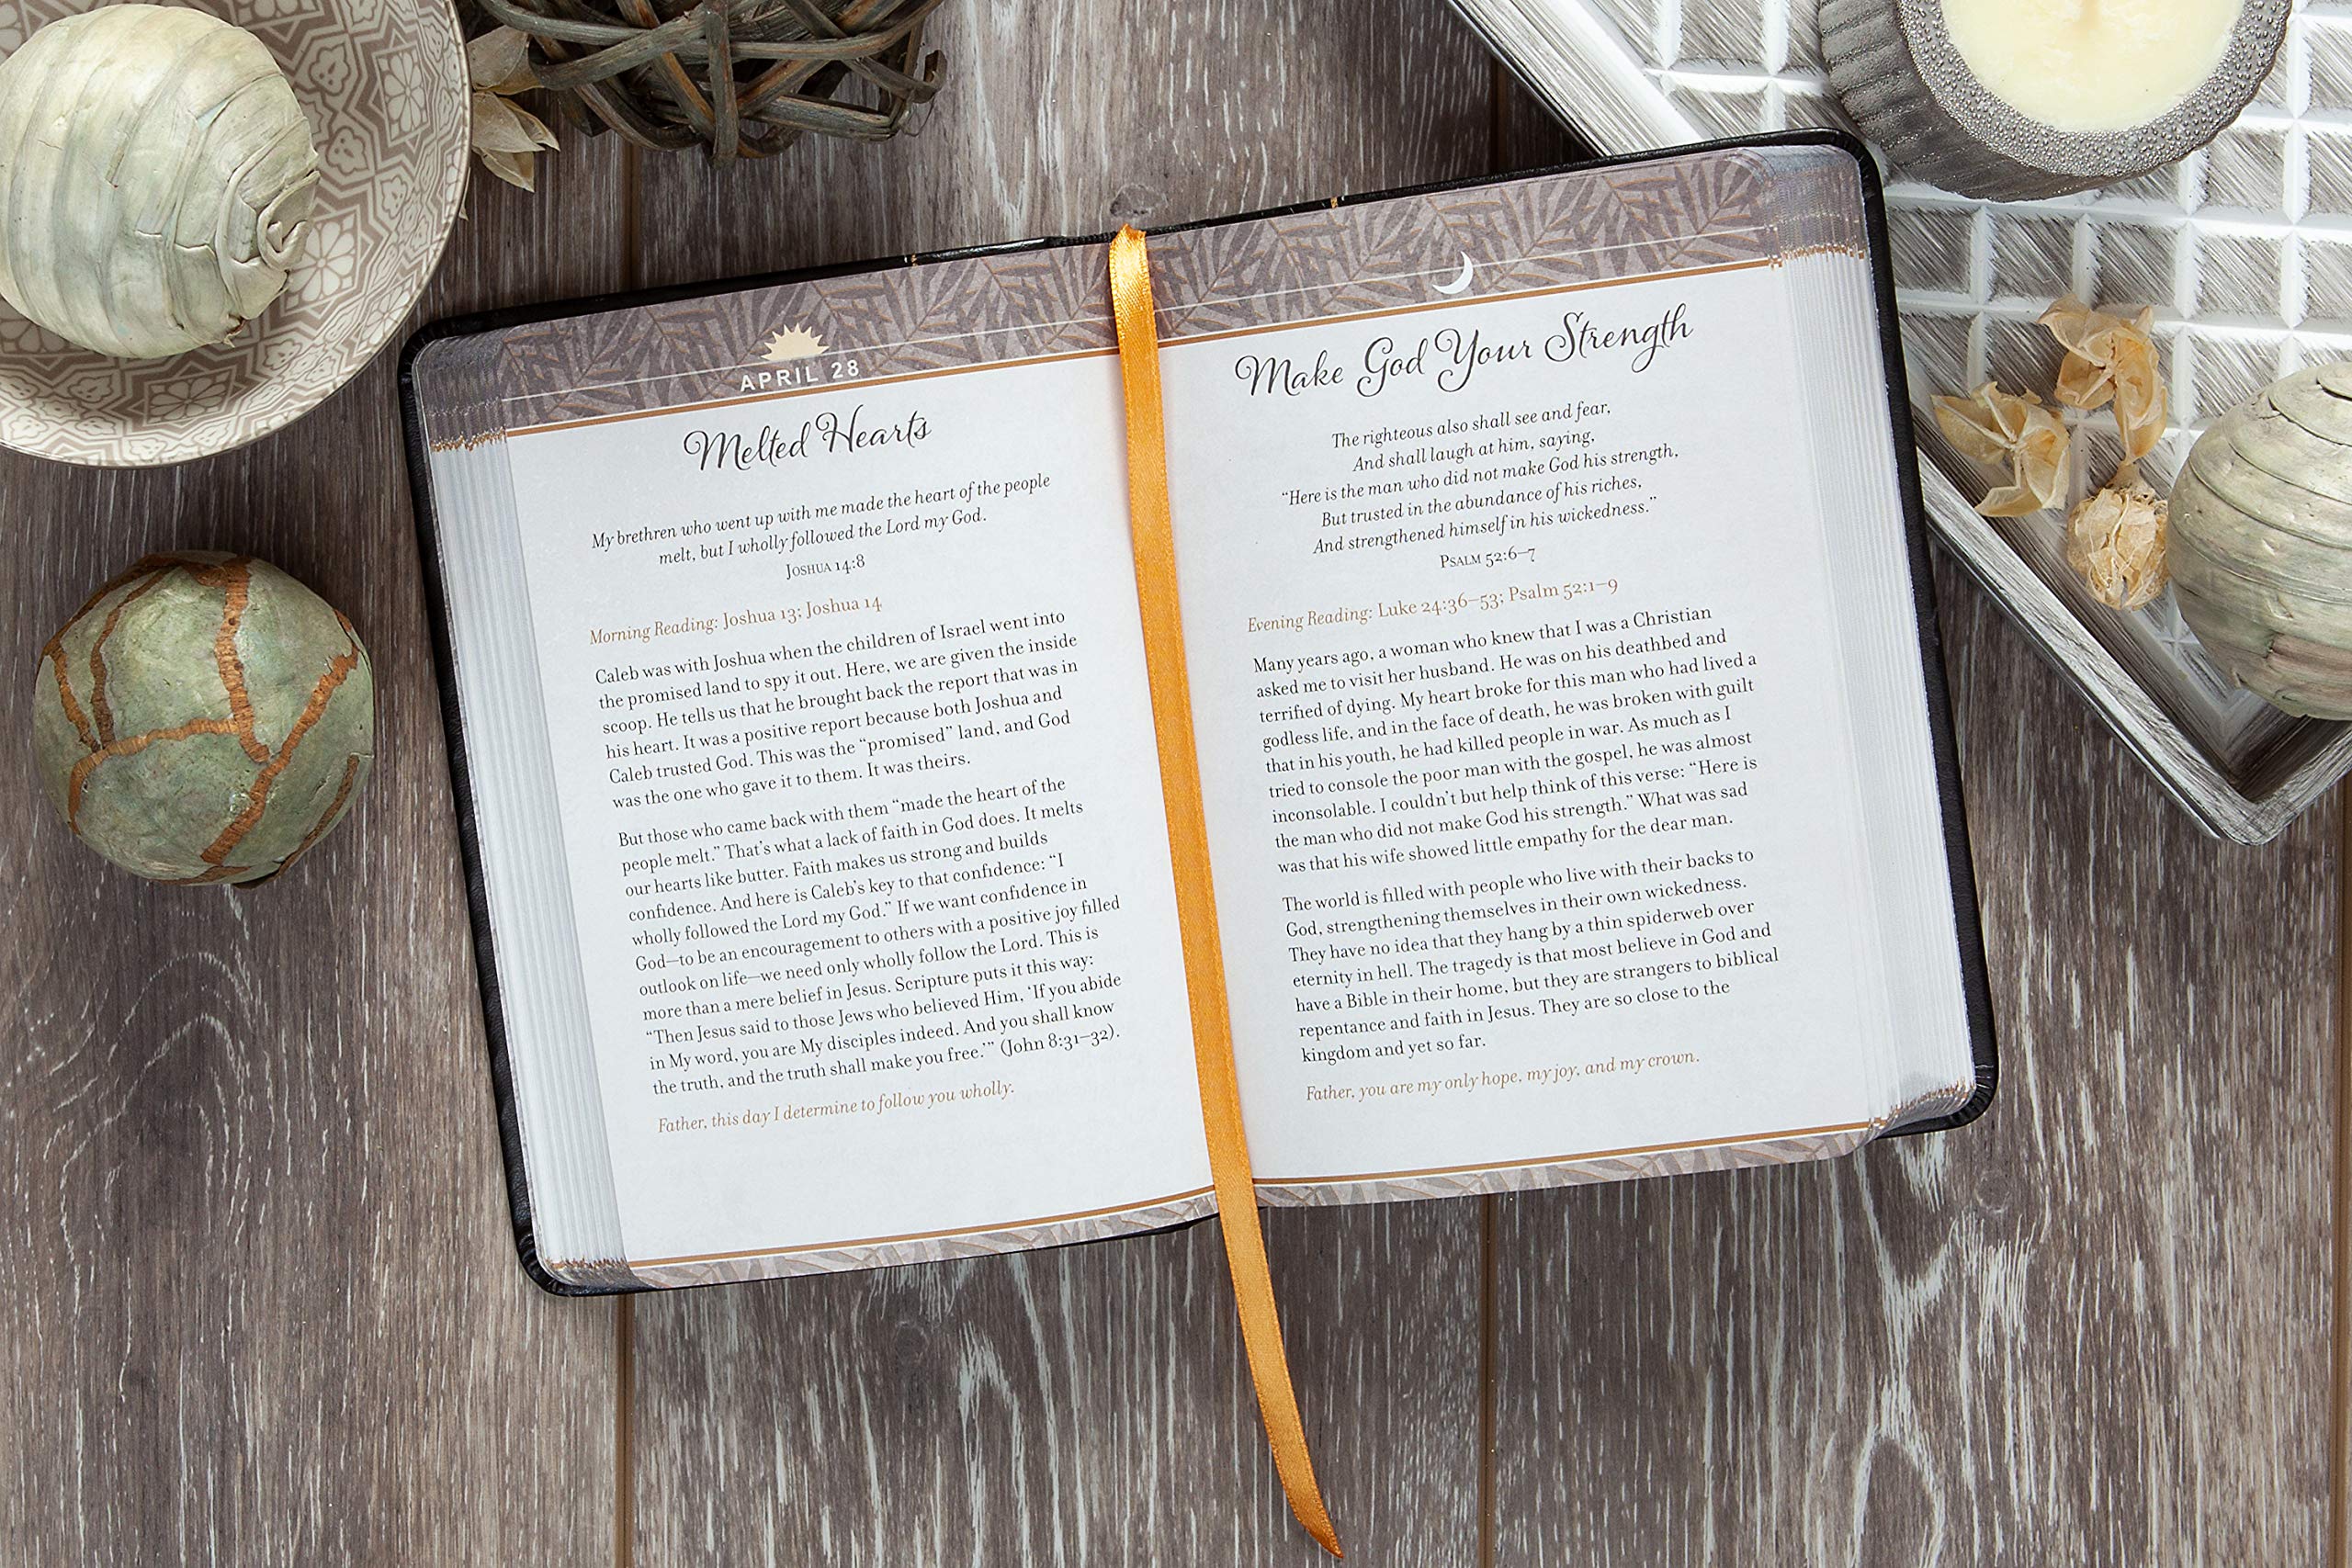 APRIL 28
Melted Hearts
My brethren who went up with me made the heart of the people
melt, but I wholly followed the Lord my God.
Joshua 14:8
Morning Reading: Joshua 13; Joshua 14
Caleb was with Joshua when the children of Israel went into
the promised land to spy it out. Here, we are given the inside
scoop. He tells us that he brought back the report that was in
his heart. It was a positive report because both Joshua and
Caleb trusted God. This was the “promised” land, and God
was the one who gave it to them. It was theirs.
But those who came back with them “made the heart of the
people melt.” That’s what a lack of faith in God does. It melts
our hearts like butter. Faith makes us strong and builds
confidence. And here is Caleb’s key to that confidence: “I
wholly followed the Lord my God.” If we want confidence in
God—to be an encouragement to others with a positive joy filled
outlook on life—we need only wholly follow the Lord. This is
more than a mere belief in Jesus. Scripture puts it this way:
“Then Jesus said to those Jews who believed Him, ‘If you abide
in My word, you are My disciples indeed. And you shall know
the truth, and the truth shall make you free.’” (John 8:31–32).
Father, this day I determine to follow you wholly.
Make God Your Strength
The righteous also shall see and fear,
And shall laugh at him, saying,
“Here is the man who did not make God his strength,
But trusted in the abundance of his riches,
And strengthened himself in his wickedness.”
Psalm 52:6–7
Evening Reading: Luke 24:36–53; Psalm 52:1–9
Many years ago, a woman who knew that I was a Christian
asked me to visit her husband. He was on his deathbed and
terrified of dying. My heart broke for this man who had lived a
godless life, and in the face of death, he was broken with guilt
that in his youth, he had killed people in war. As much as I
tried to console the poor man with the gospel, he was almost
inconsolable. I couldn’t but help think of this verse: “Here is
the man who did not make God his strength.” What was sad
was that his wife showed little empathy for the dear man.
The world is filled with people who live with their backs to
God, strengthening themselves in their own wickedness.
They have no idea that they hang by a thin spiderweb over
eternity in hell. The tragedy is that most believe in God and
have a Bible in their home, but they are strangers to biblical
repentance and faith in Jesus. They are so close to the
kingdom and yet so far.
Father, you are my only hope, my joy, and my crown.